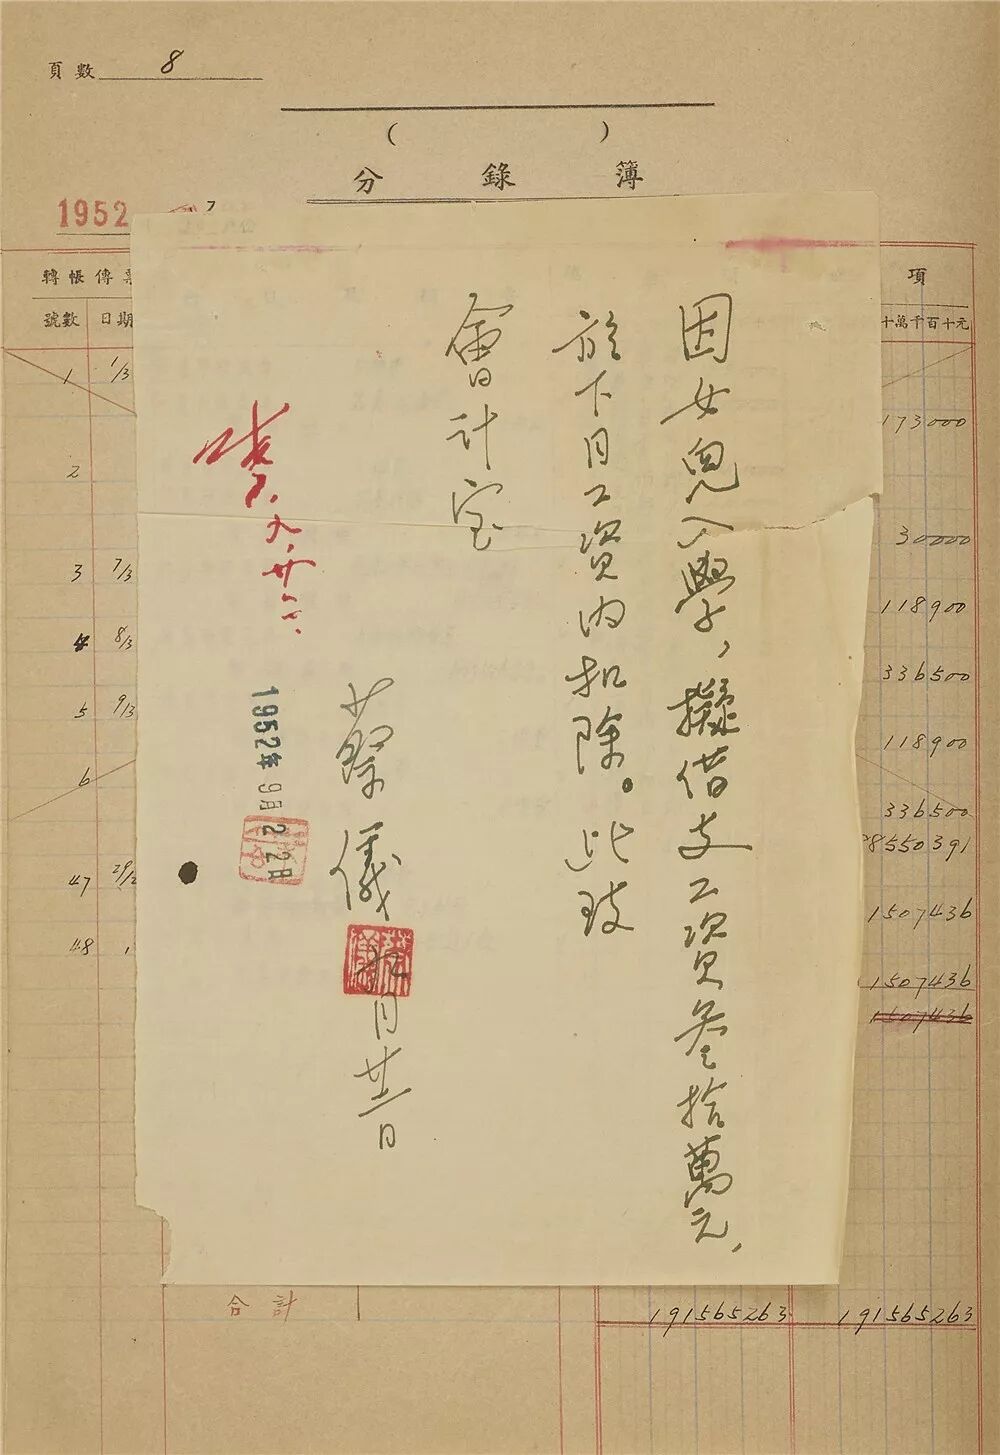 頁數 8
( )
分錄簿
1952
7
轉帳傳票
號數 日期
項
十萬千百十元
因女兒入學，擬借支工資叁拾萬元，
於下月工資內扣除。此致
會計室
蔡儀 九月廿二日
九.廿二.
1952年9月22日
蔡儀
1 1/3
173000
2
30000
3 7/3
118900
4 8/3
336500
5 9/3
118900
6
336500
8550391
47 29/12
1507436
48
1507436
1507436
合計 191565263 191565263